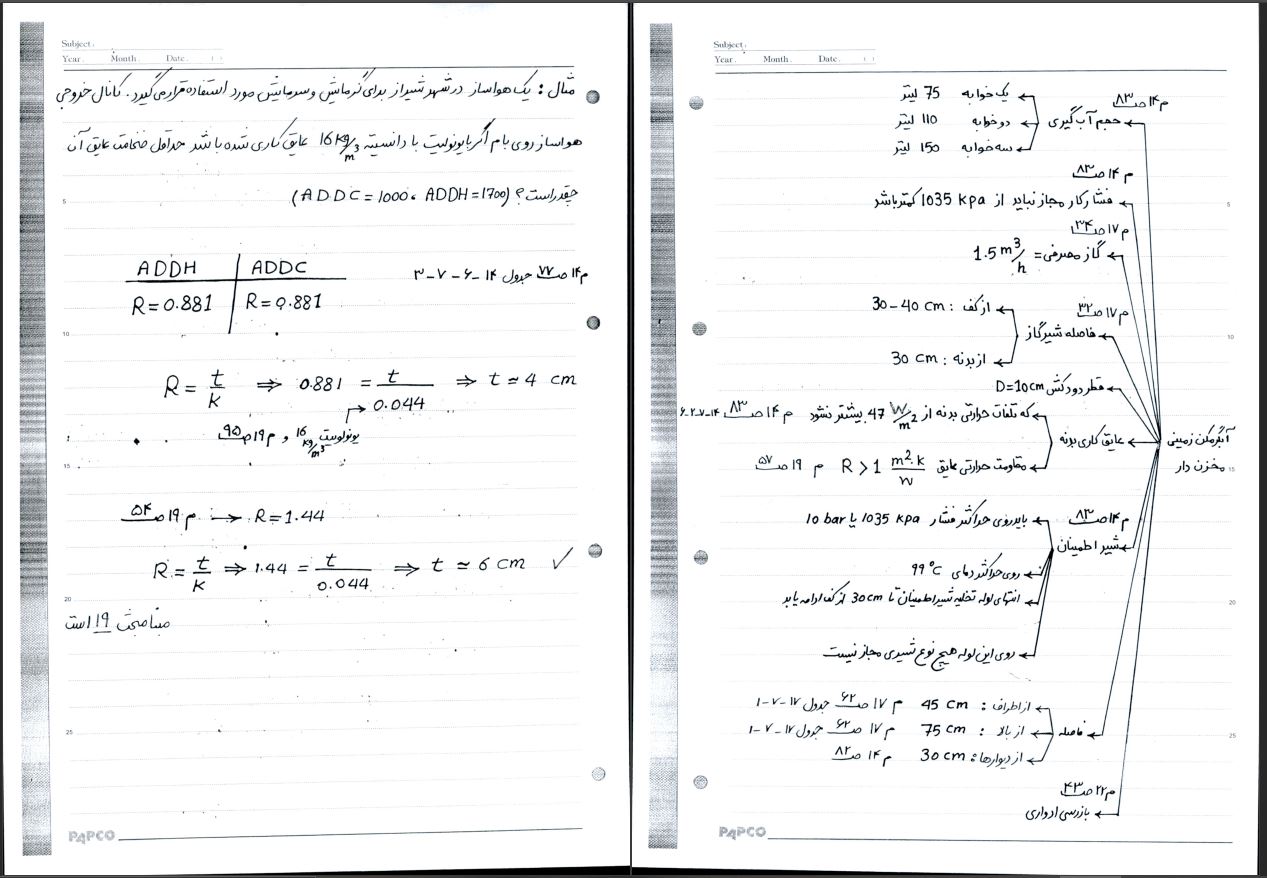 Subject:
Year. Month. Date. ( )
م ۱۴ ص ۸۳
حجم آب گیری
یک خوابه 75 لیتر
دو خوابه 110 لیتر
سه خوابه 150 لیتر
م ۱۴ ص ۸۳
فشار کار مجاز نباید از 1035 kpa کمتر باشد
م ۱۷ ص ۳۴
گاز مصرفی = 1.5 m³/h
م ۱۷ ص ۳۲
فاصله شیر گاز
از کف : 30-40 cm
از بدنه : 30 cm
قطر دودکش D=10cm
آبگرمکن زمینی
مخزن دار
عایق کاری بدنه
که تلفات حرارتی بدنه از 47 W/m² بیشتر نشود م ۱۴ ص ۸۳ ۱۴-۷-۲-۶
مقاومت حرارتی عایق R > 1 m².k/W م ۱۹ ص ۵۷
م ۱۴ ص ۸۳
شیر اطمینان
باید روی حداکثر فشار 1035 kpa یا 10 bar
روی حداکثر دمای ۹۹°C
انتهای لوله تخلیه شیر اطمینان تا 30 cm از کف ادامه یابد
روی این لوله هیچ نوع شیری مجاز نیست
فاصله
از اطراف : 45 cm م ۱۷ ص ۶۲ جدول ۱۷-۷-۱
از بالا : 75 cm م ۱۷ ص ۶۲ جدول ۱۷-۷-۱
از دیوارها : 30 cm م ۱۴ ص ۸۲
م ۲۲ ص ۴۳
بازرسی ادواری
5
10
15
20
25
PAPCO
Subject:
Year. Month. Date. ( )
مثال : یک هواساز در شهر شیراز برای گرمایش و سرمایش مورد استفاده قرار می گیرد . کانال خروجی
هواساز روی بام اگر با یونولیت با دانسیته 16 kg/m³ عایق کاری شده باشد حداقل ضخامت عایق آن
چقدر است ؟ (ADDC = 1000 ، ADDH = 1700)
م ۱۴ ص ۷۷ جدول ۱۴-۶-۷-۳
ADDH | ADDC
R = 0.881 | R = 0.881
R = t/k ⇒ 0.881 = t/0.044 ⇒ t ≃ 4 cm
یونولیت 16 kg/m³ و م ۱۹ ص ۹۵
م ۱۹ ص ۵۴ → R = 1.44
R = t/k ⇒ 1.44 = t/0.044 ⇒ t ≃ 6 cm ✓
مبنا مبحث 19 است
5
10
15
20
25
PAPCO